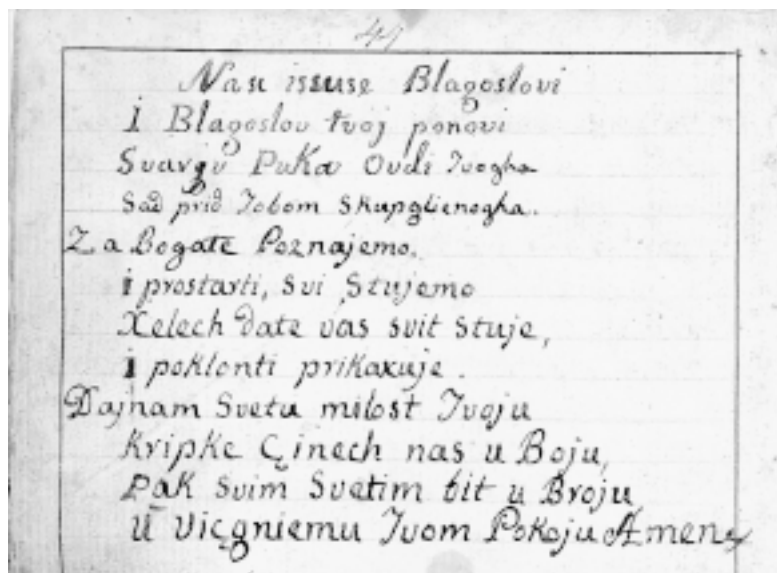 44
Nasc issuse Blagoslovi
I Blagoslov tvoj ponovi
Svargu Puka Ovdi Tvogha
Sad prid Tobom Skupglienogha.
Za Bogate Poznajemo,
i prostarti, svi Stujemo
Xelech date vas svit stuje,
i poklonti prikaxuje.
Dajnam Svetu milost Tvoju
Kripke Çinech nas u Boju,
Pak Svim Svetim bit u Broju
U Viçgniemu Tvom Pokoju Amen